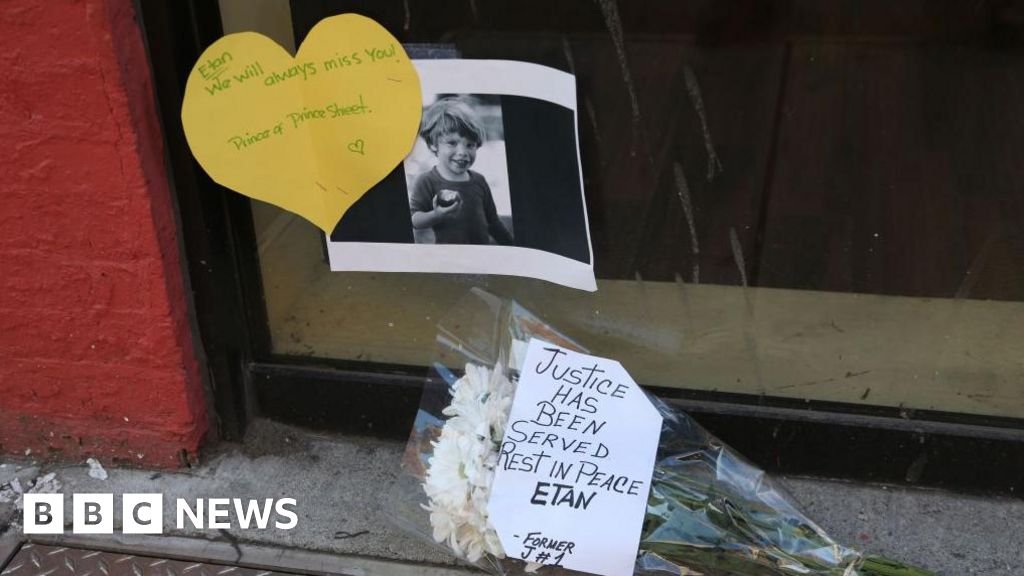 Etan
We will always miss you!
Prince of Prince Street.
JUSTICE
HAS
BEEN
SERVED
REST IN PEACE
ETAN
- FORMER
J#1
BBC NEWS